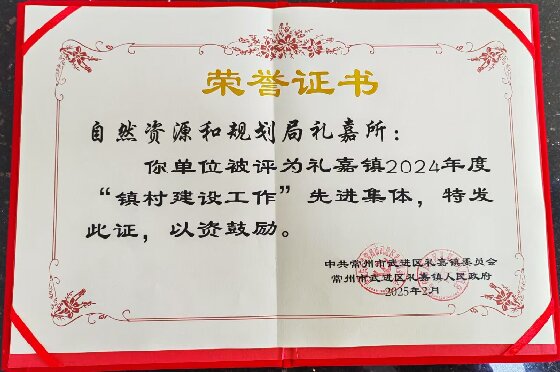 荣誉证书
自然资源和规划局礼嘉所：
你单位被评为礼嘉镇2024年度
“镇村建设工作”先进集体，特发
此证，以资鼓励。
中共常州市武进区礼嘉镇委员会
常州市武进区礼嘉镇人民政府
2025年2月